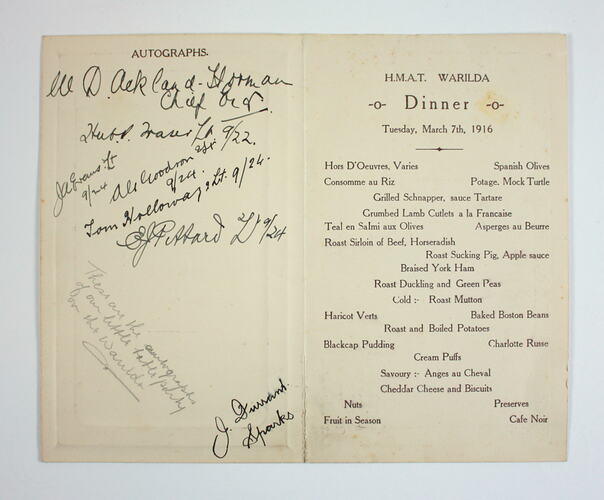 AUTOGRAPHS.
W D. Ackland-Horman
Chief
Fraser Lt 9/22.
J A Evans Lt
9/24
Goodson
2/Lt
9/24.
Tom Holloway 2/Lt. 9/24.
Pittard 2/Lt 9/24
These are the autographs
of our little table party
on the Warilda
J. Durrant.
Sparks
H.M.A.T. WARILDA
-o- Dinner -o-
Tuesday, March 7th, 1916
Hors D'Oeuvres, Varies Spanish Olives
Consomme au Riz Potage. Mock Turtle
Grilled Schnapper, sauce Tartare
Grumbed Lamb Cutlets a la Francaise
Teal en Salmi aux Olives Asperges au Beurre
Roast Sirloin of Beef, Horseradish
Roast Sucking Pig, Apple sauce
Braised York Ham
Roast Duckling and Green Peas
Cold :- Roast Mutton
Haricot Verts Baked Boston Beans
Roast and Boiled Potatoes
Blackcap Pudding Charlotte Russe
Cream Puffs
Savoury :- Anges au Cheval
Cheddar Cheese and Biscuits
Nuts Preserves
Fruit in Season Cafe Noir